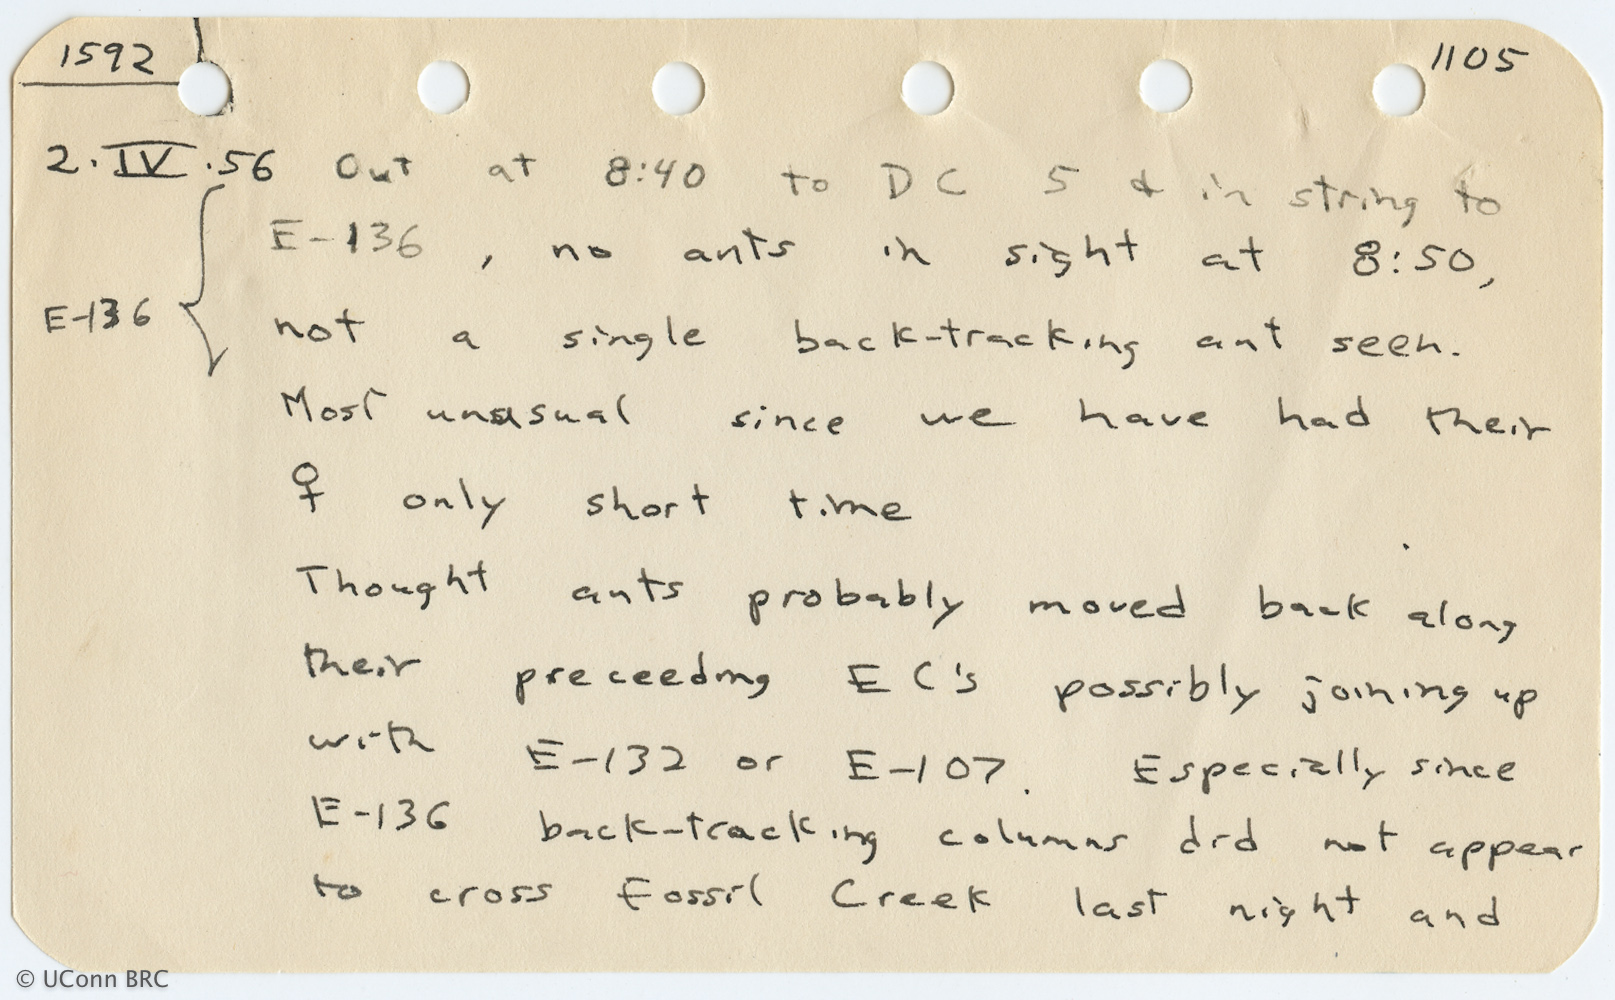 1592
1105
2·IV·56 Out at 8:40 to DC 5 & in string to
E-136, no ants in sight at 8:50,
E-136
not a single back-tracking ant seen.
Most unusual since we have had their
♀ only short time
Thought ants probably moved back along
their preceeding EC's possibly joining up
with E-132 or E-107. Especially since
E-136 back-tracking columns did not appear
to cross Fossil Creek last night and
© UConn BRC